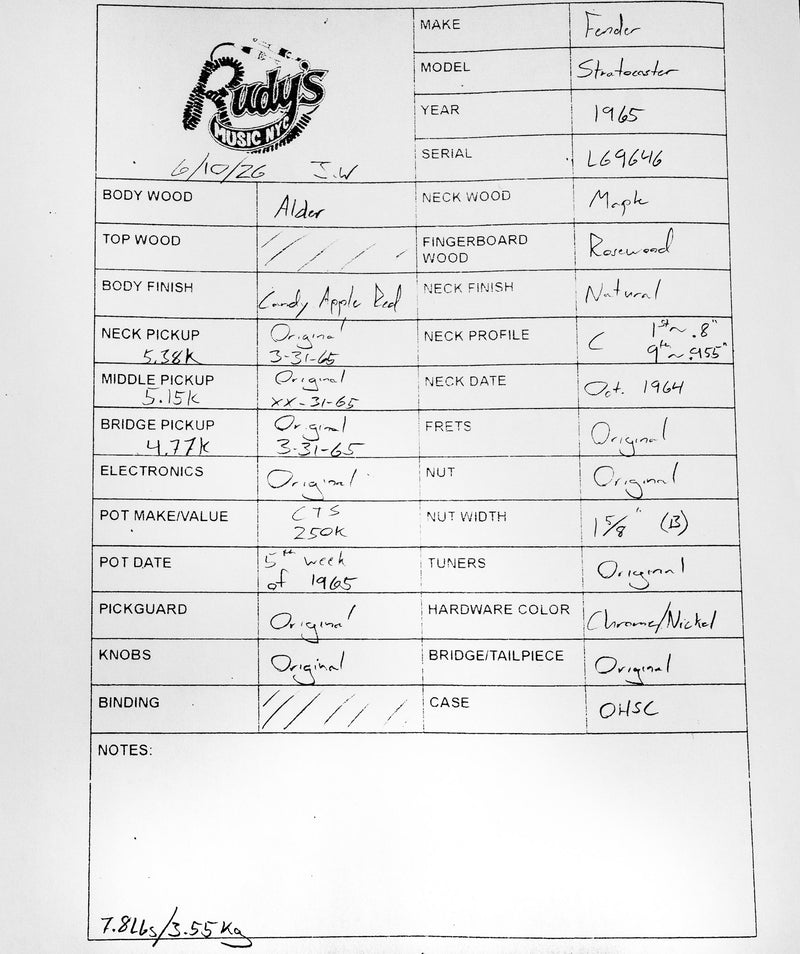 Rudy's
MUSIC NYC
6/10/26 J.W
MAKE Fender
MODEL Stratocaster
YEAR 1965
SERIAL L69646
BODY WOOD Alder NECK WOOD Maple
TOP WOOD FINGERBOARD WOOD Rosewood
BODY FINISH Candy Apple Red NECK FINISH Natural
NECK PICKUP 5.38K Original 3-31-65 NECK PROFILE C 1st ~ .8" 9th ~ .955"
MIDDLE PICKUP 5.15K Original xx-31-65 NECK DATE Oct. 1964
BRIDGE PICKUP 4.77K Original 3-31-65 FRETS Original
ELECTRONICS Original NUT Original
POT MAKE/VALUE CTS 250K NUT WIDTH 1 5/8" (B)
POT DATE 5th week of 1965 TUNERS Original
PICKGUARD Original HARDWARE COLOR Chrome/Nickel
KNOBS Original BRIDGE/TAILPIECE Original
BINDING CASE OHSC
NOTES:
7.8Lbs/3.55Kg